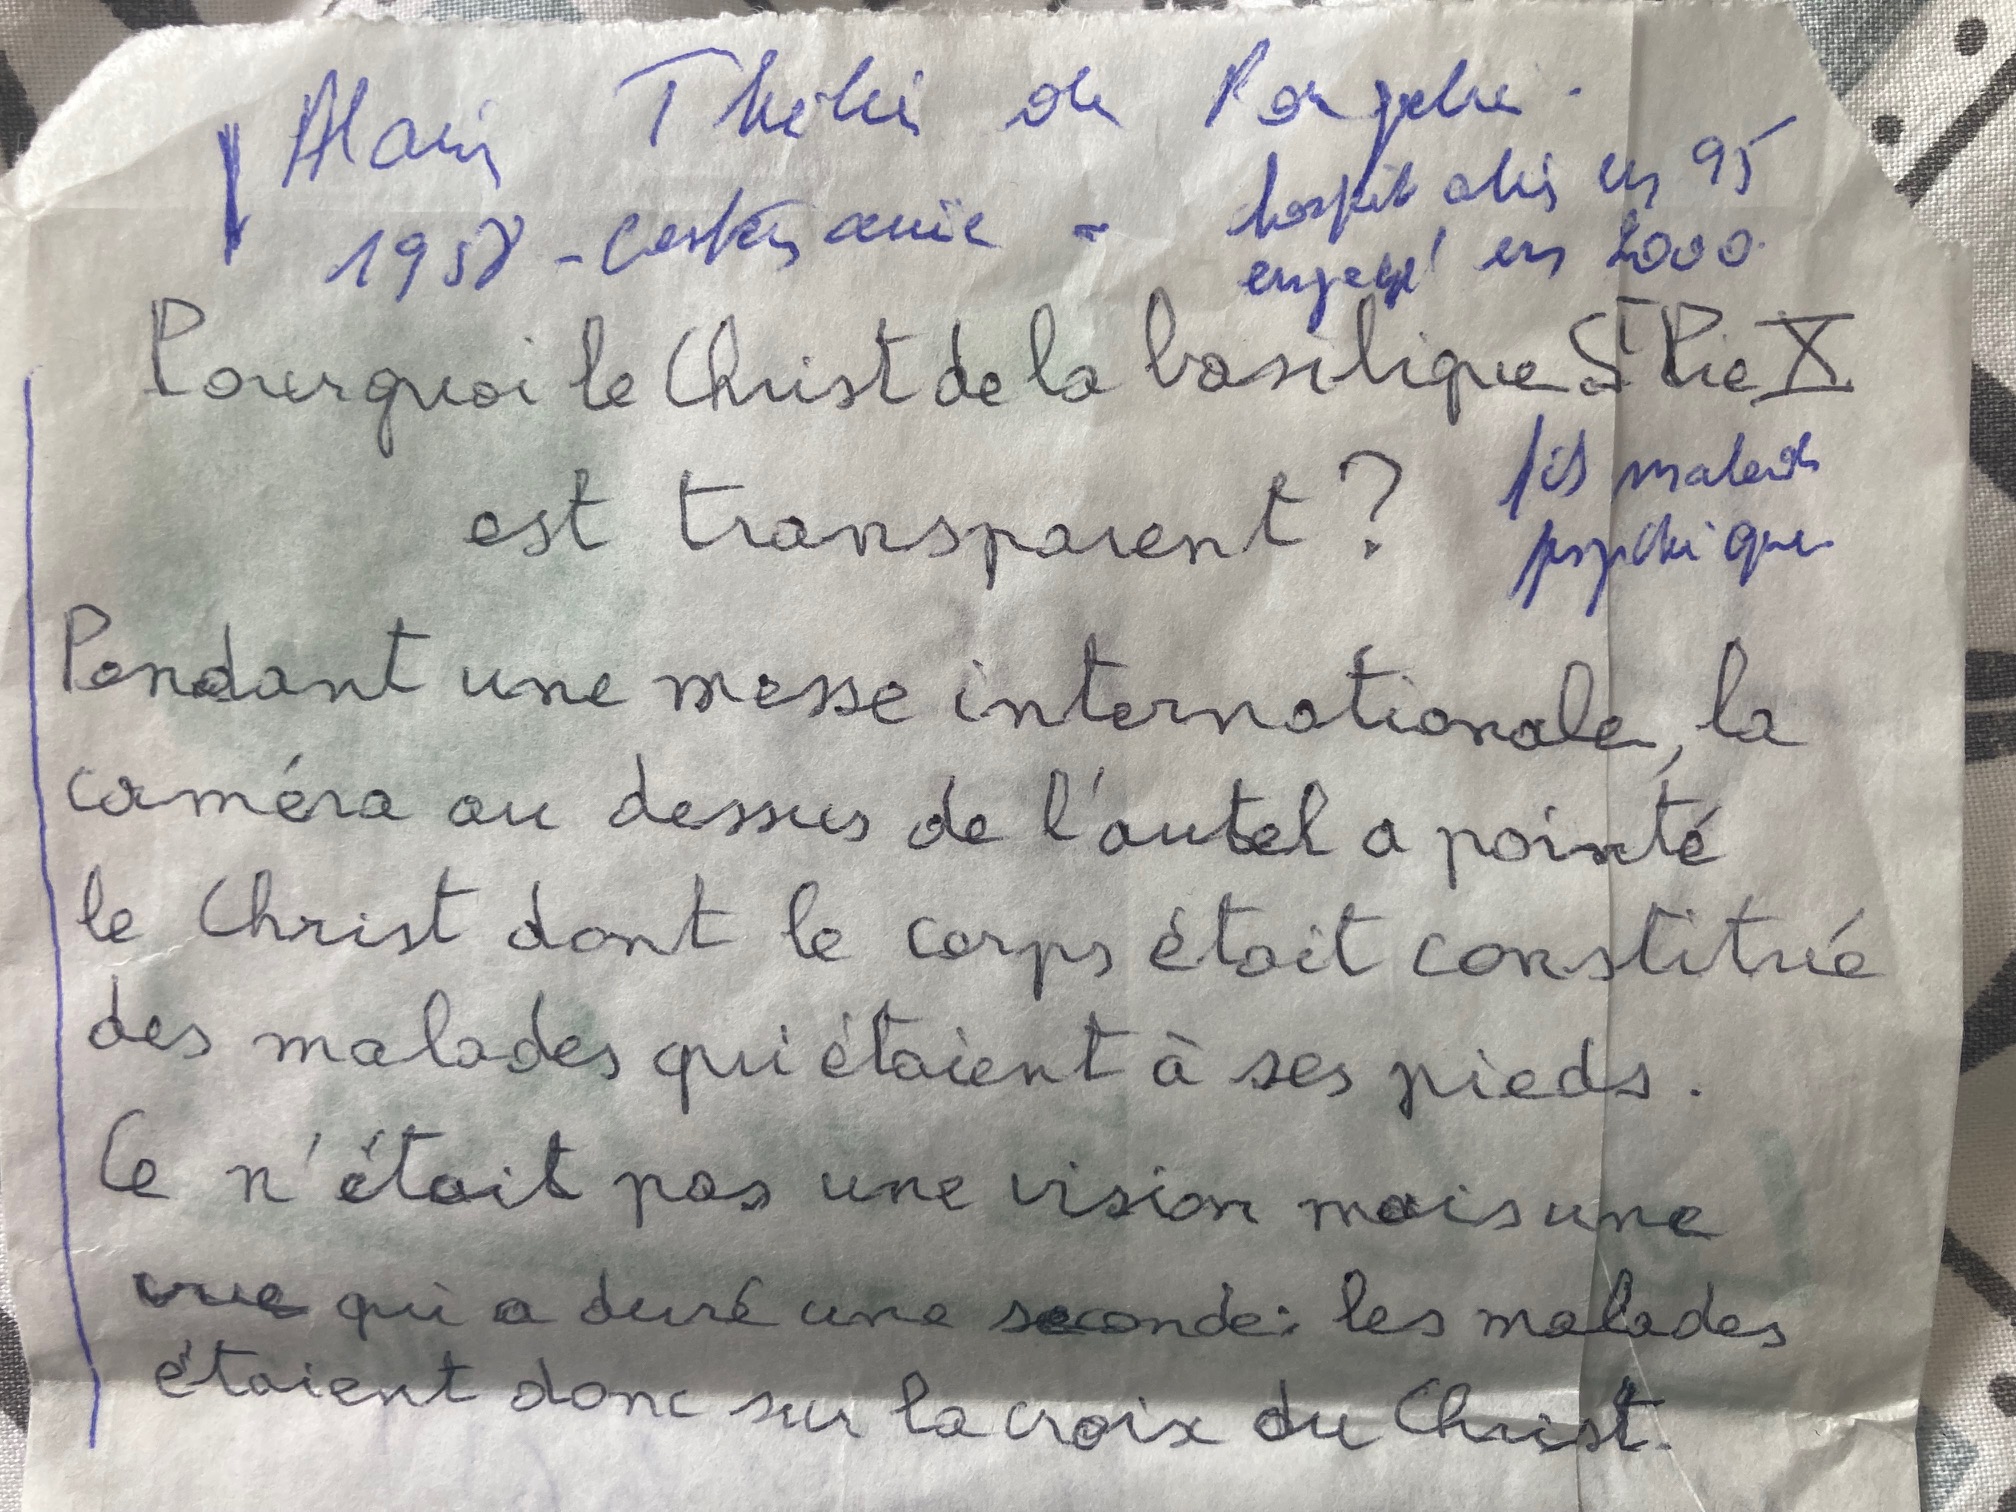 Alain
1958 - 
hospitalisé en 95
engagé en 2000
Pourquoi le Christ de la basilique St Pie X
est transparent ?
fils malade
psychique
Pendant une messe internationale, la
caméra au dessus de l'autel a pointé
le Christ dont le corps était constituée
des malades qui étaient à ses pieds.
Ce n'était pas une vision mais une
vue qui a duré une seconde : les malades
étaient donc sur la croix du Christ.